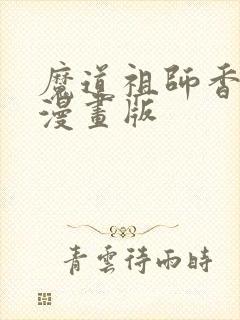 魔道祖師香
漫畫版
青雲待雨時